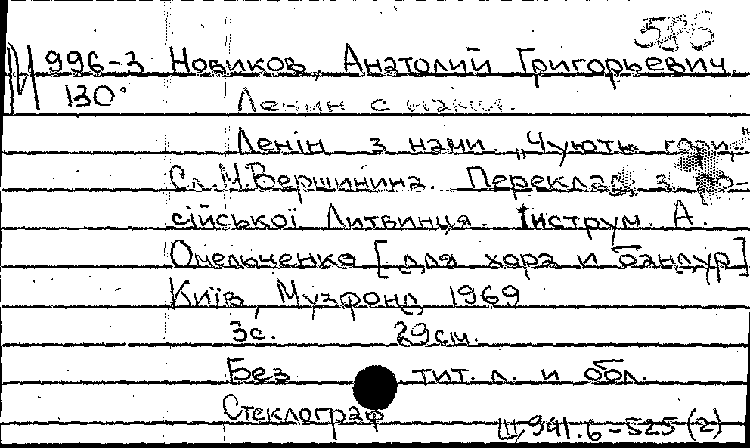 585
М 996-3 Новиков, Анатолий Григорьевич
130
Ленин с нами.
Ленін з нами. „Чують гори,"
Сл. М. Вершинина. Переклад з ро-
сійської Литвинця. Інструм. А.
Омельченка [для хора и бандур]
Київ, Музфонд, 1969
3с. 29см.
Без тит. л. и обл.
Стеклограф
Ш 941.6-525 (2)